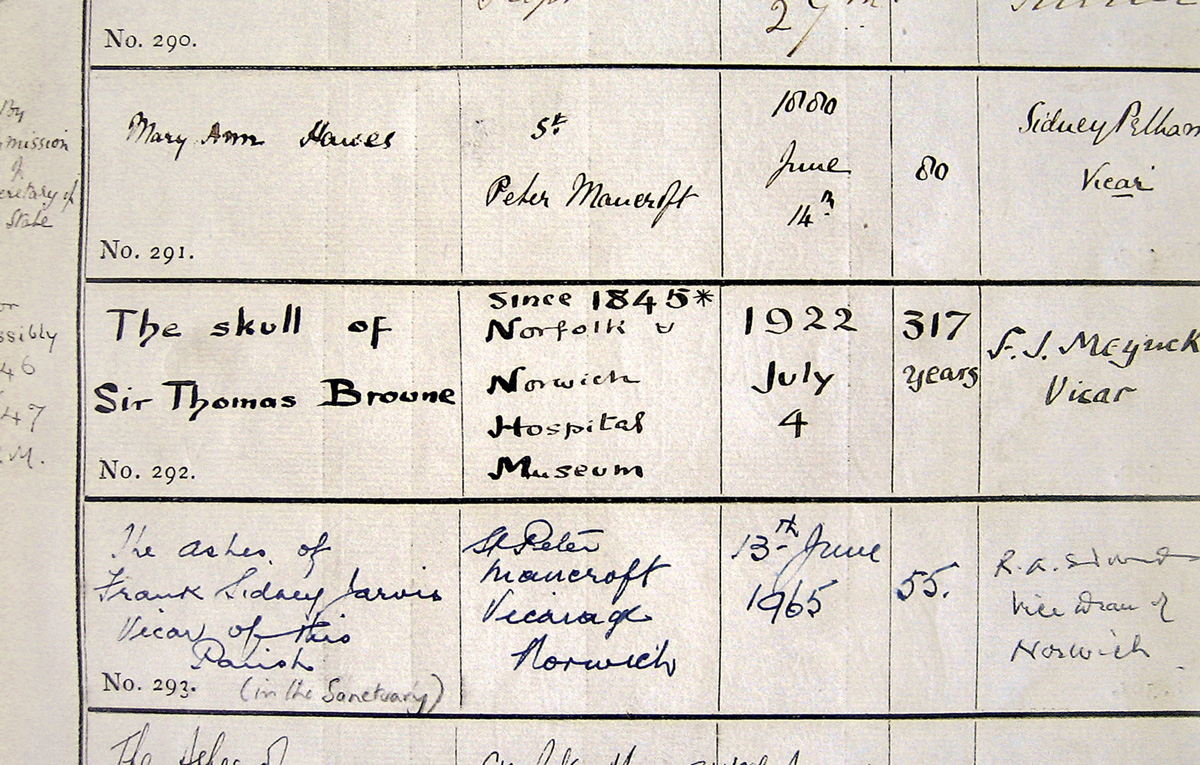 27th
No. 290.
By
mission
of
Secretary of
State
Mary Ann Hawes
St
Peter Mancroft
1880
June
14th
80
Sidney Pelham
Vicar
No. 291.
or
ssibly
46
47
.M.
The skull of
Sir Thomas Browne
since 1845*
Norfolk &
Norwich
Hospital
Museum
1922
July
4
317
years
F. J. Meyrick
Vicar
No. 292.
The ashes of
Frank Sidney Jarvis
Vicar of this
Parish
(in the Sanctuary)
St Peter
Mancroft
Vicarage
Norwich
13th June
1965
55.
R. A.
Vice Dean of
Norwich
No. 293.
The Ashes of